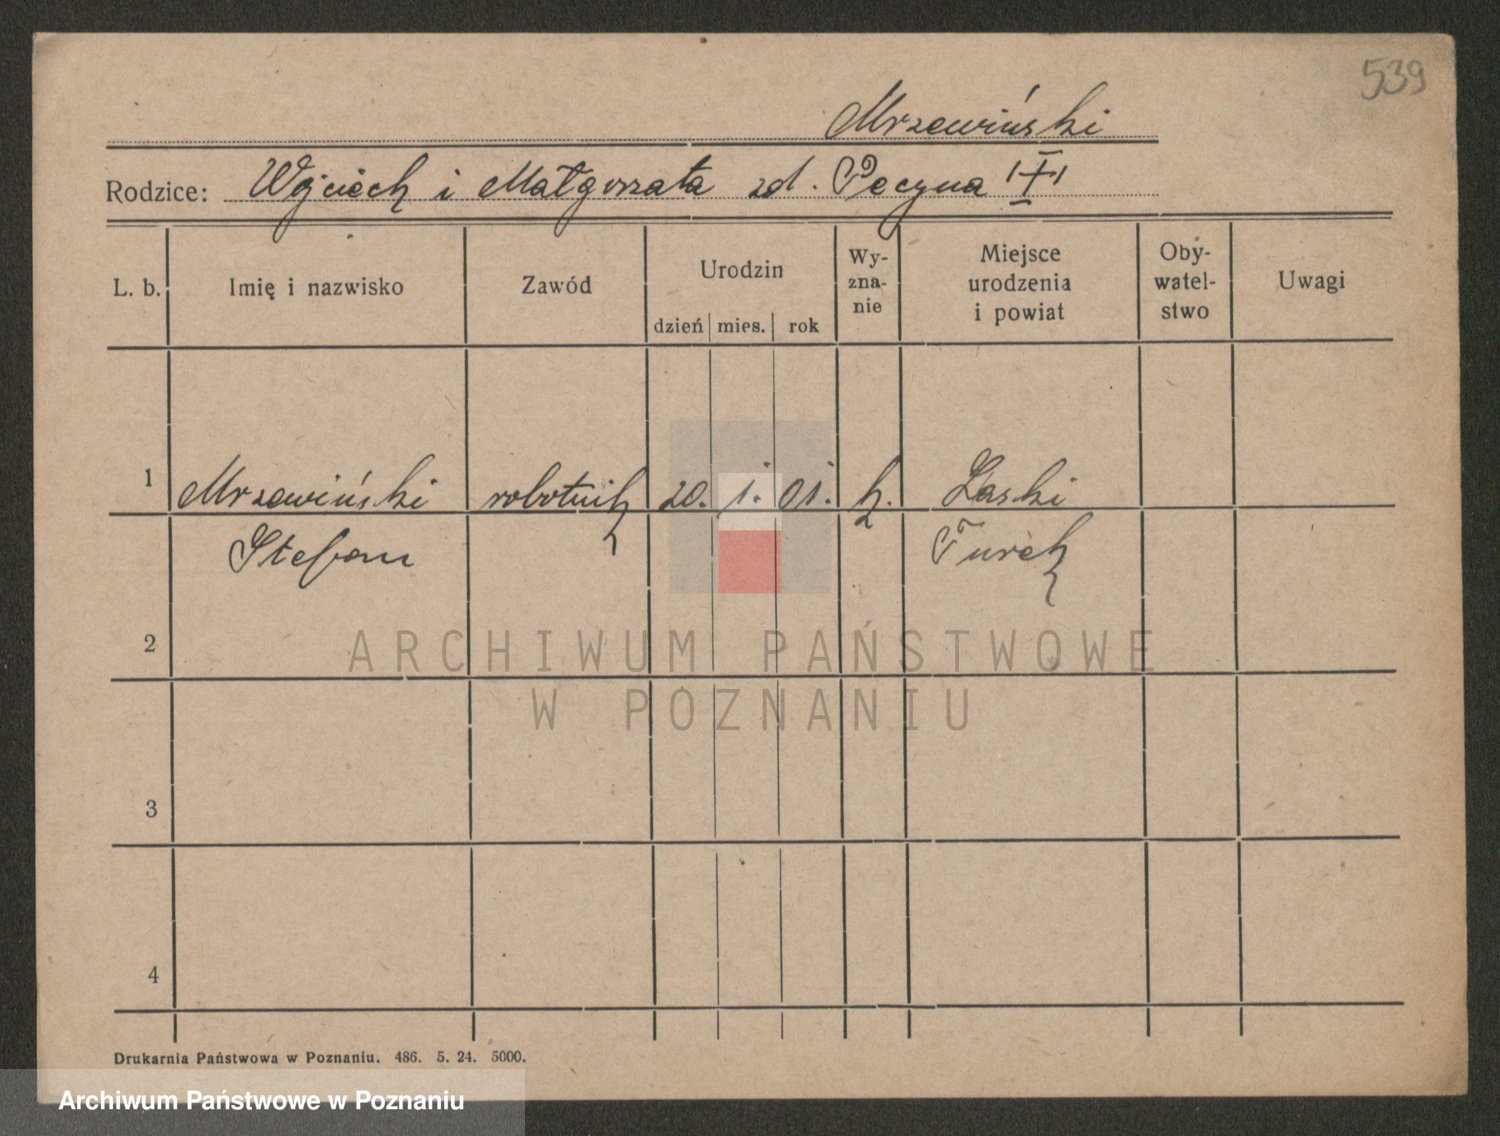 539
Mrzewiński
Rodzice: Wojciech i Małgorzata zd. Pecyna
L. b. Imię i nazwisko Zawód Urodzin dzień mies. rok Wy-zna-nie Miejsce urodzenia i powiat Oby-watel-stwo Uwagi
1 Mrzewiński robotnik 20. 1. 01. k. Laski
Stefan Turek
2
ARCHIWUM PAŃSTWOWE
W POZNANIU
3
4
Drukarnia Państwowa w Poznaniu. 486. 5. 24. 5000.
Archiwum Państwowe w Poznaniu